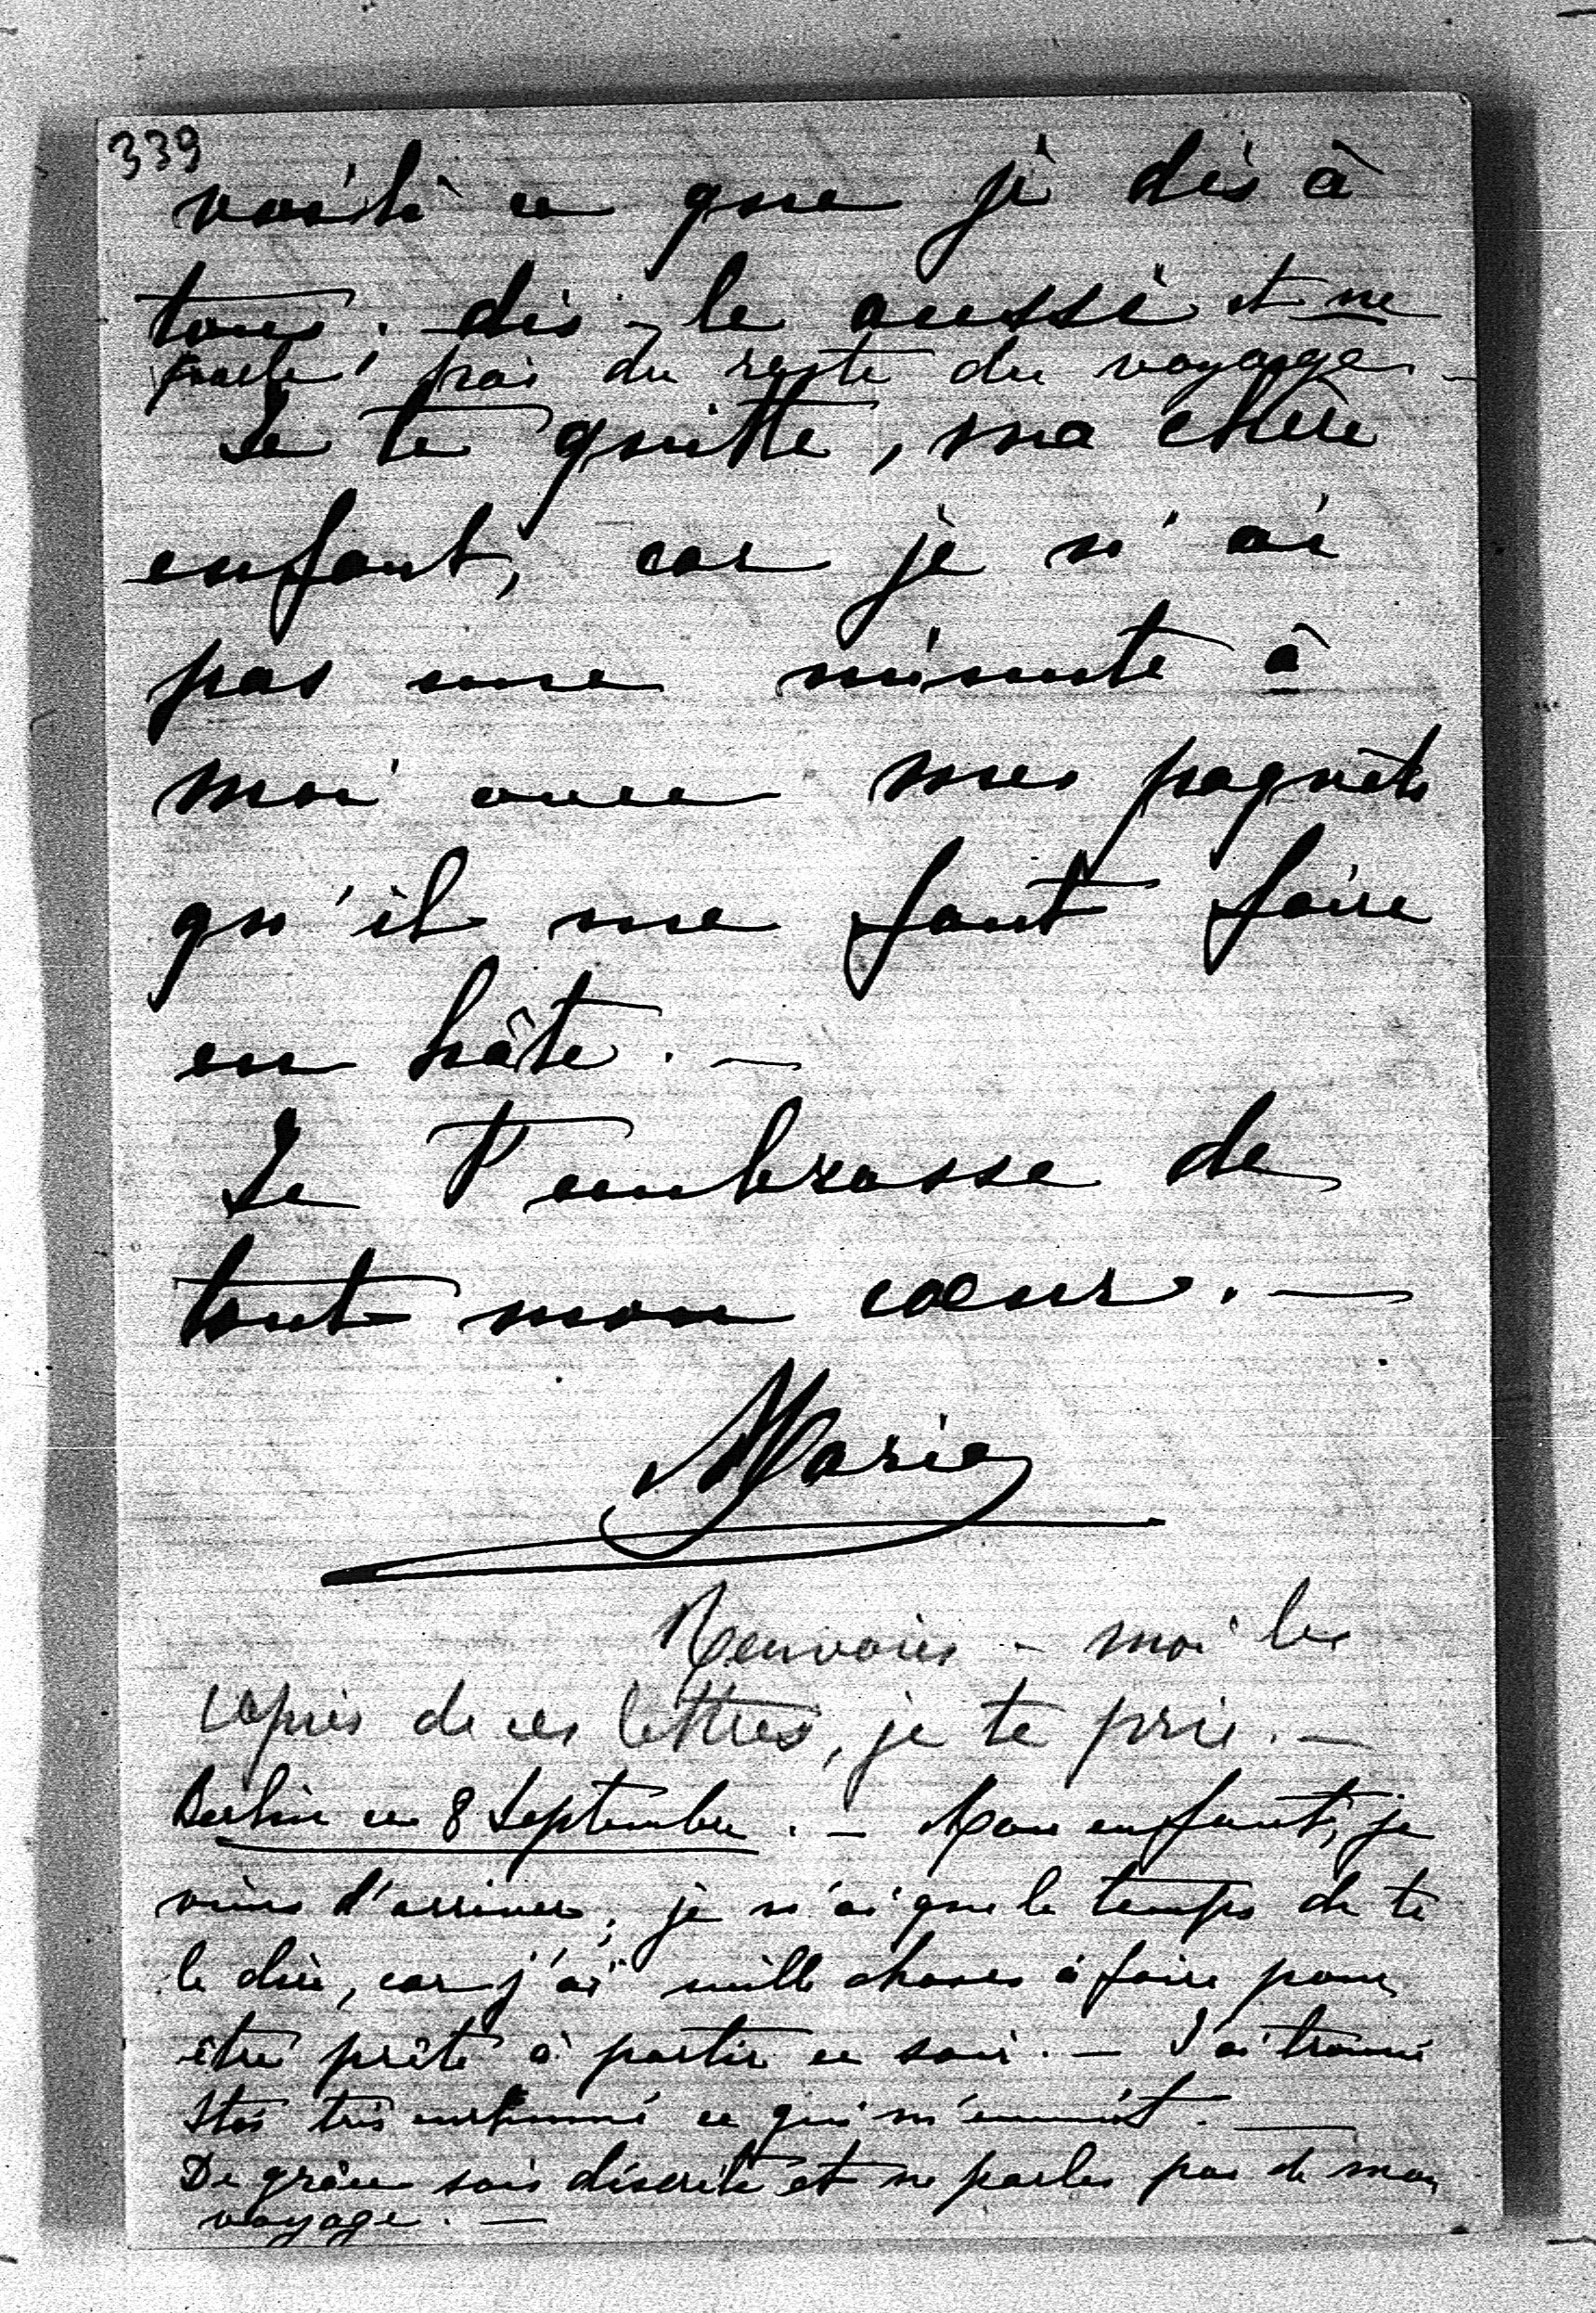 339
voilà ce que je dis à
tous. dis-le aussi et ne
parle pas du reste du voyage –
Je te quitte, ma chère
enfant, car je n'ai
pas une minute à
moi avec mes paquets
qu'il me faut faire
en hâte. –
Je t'embrasse de
tout mon cœur. –
Marie
Renvoies-moi les
copies de ces lettres, je te prie. –
Berlin ce 8 Septembre. – Mon enfant, je
viens d'arriver; je n'ai que le temps de te
le dire, car j'ai mille choses à faire pour
être prête à partir ce soir. – J'ai trouvé
Stas très enrhumé ce qui m'ennuit. –
De grâce sois discrète et ne parles pas de mon
voyage. –